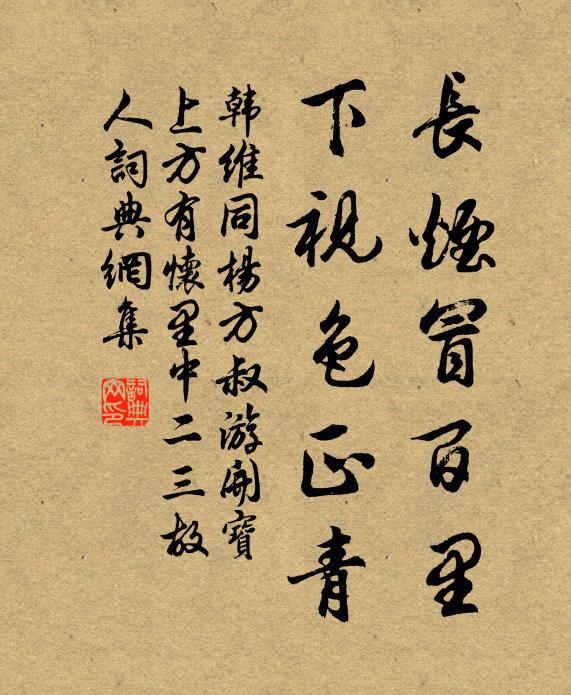 長煙冒百里
下視色正青
韩維同楊方叔游開寶
上方有懷里中二三故
人詞典網集
詞典網印